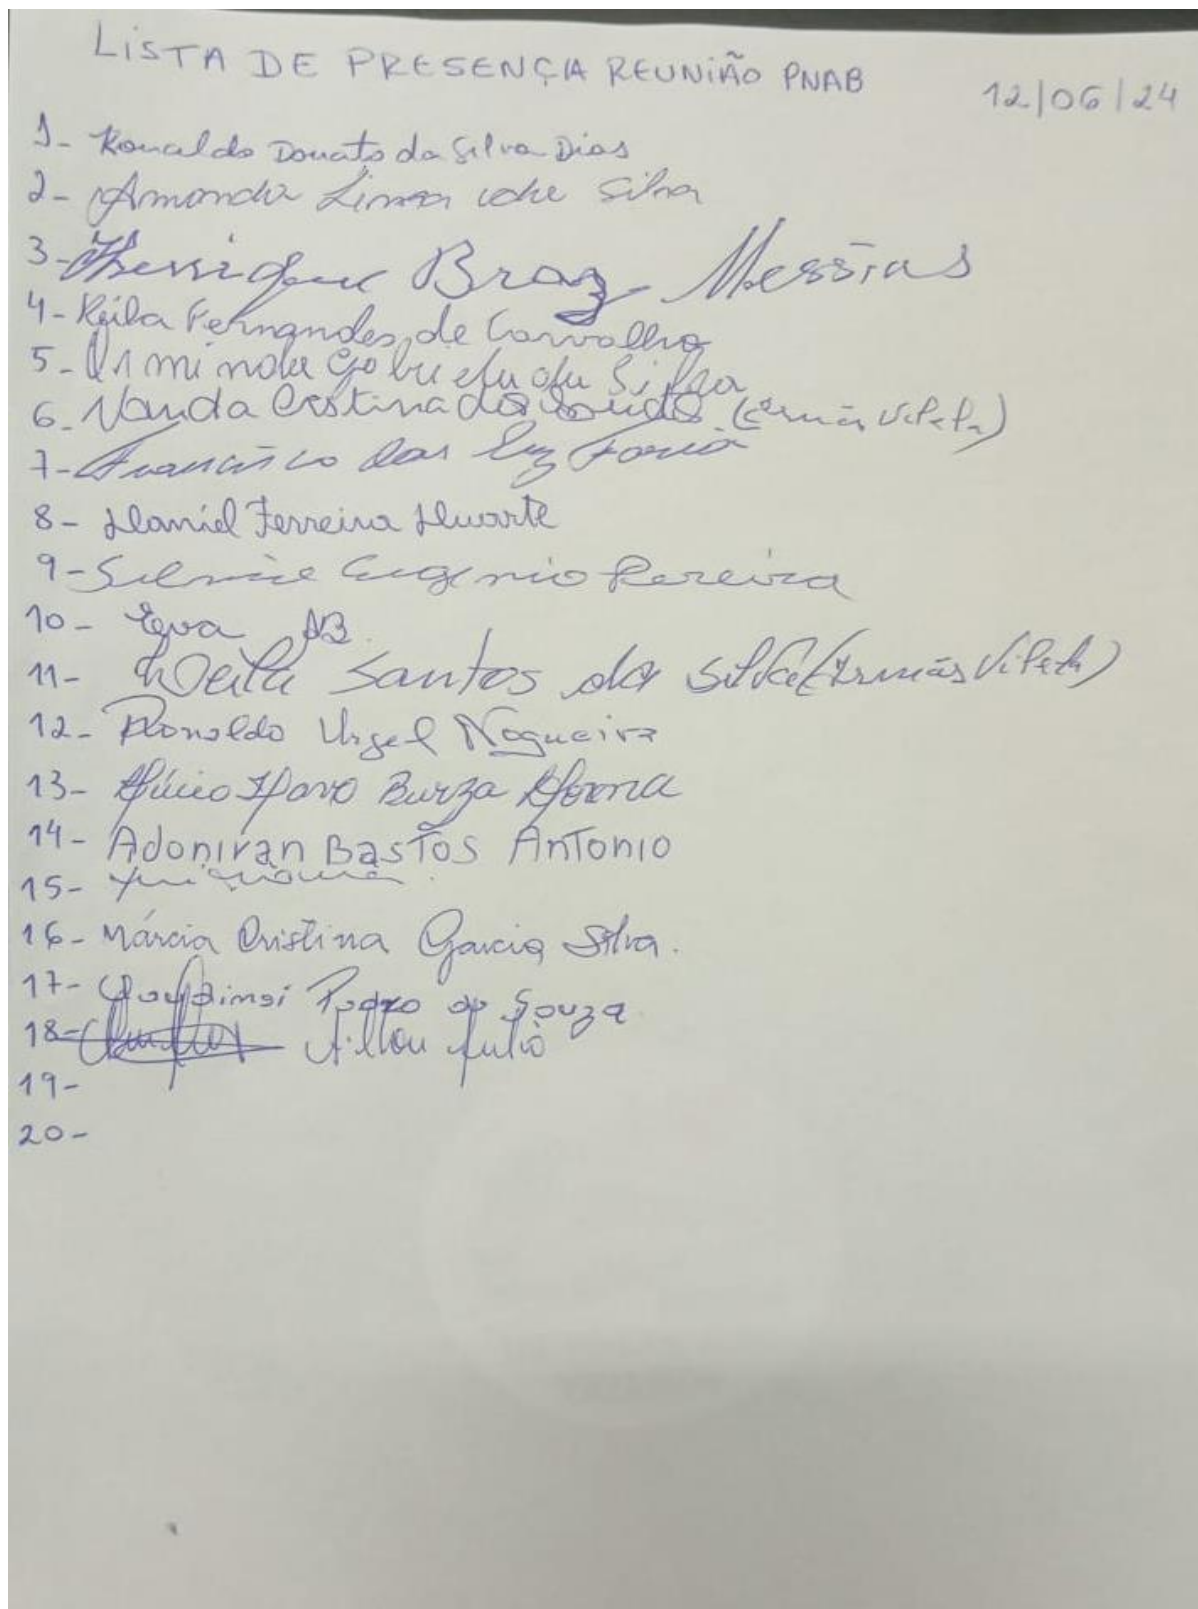 LISTA DE PRESENÇA REUNIÃO PNAB 12/06/24
1- Ronaldo Donato da Silva Dias
2- Amanda Lima da Silva
3- Henrique Braz Messias
4- Keila Fernandes de Carvalho
5- Gabriela da Silva
6- Vanda Cristina (Irmãs Vilela)
7- Francisco das Luz Faria
8- Daniel Ferreira Duarte
9- Eugenio Pereira
10- Eva
11- Santos da Silva (Irmãs Vilela)
12- Ronaldo Urgel Nogueira
13- Burza
14- Adoniran Bastos Antonio
15-
16- Márcia Cristina Garcia Silva.
17- Pedro de Souza
18- Ailton Julio
19-
20-